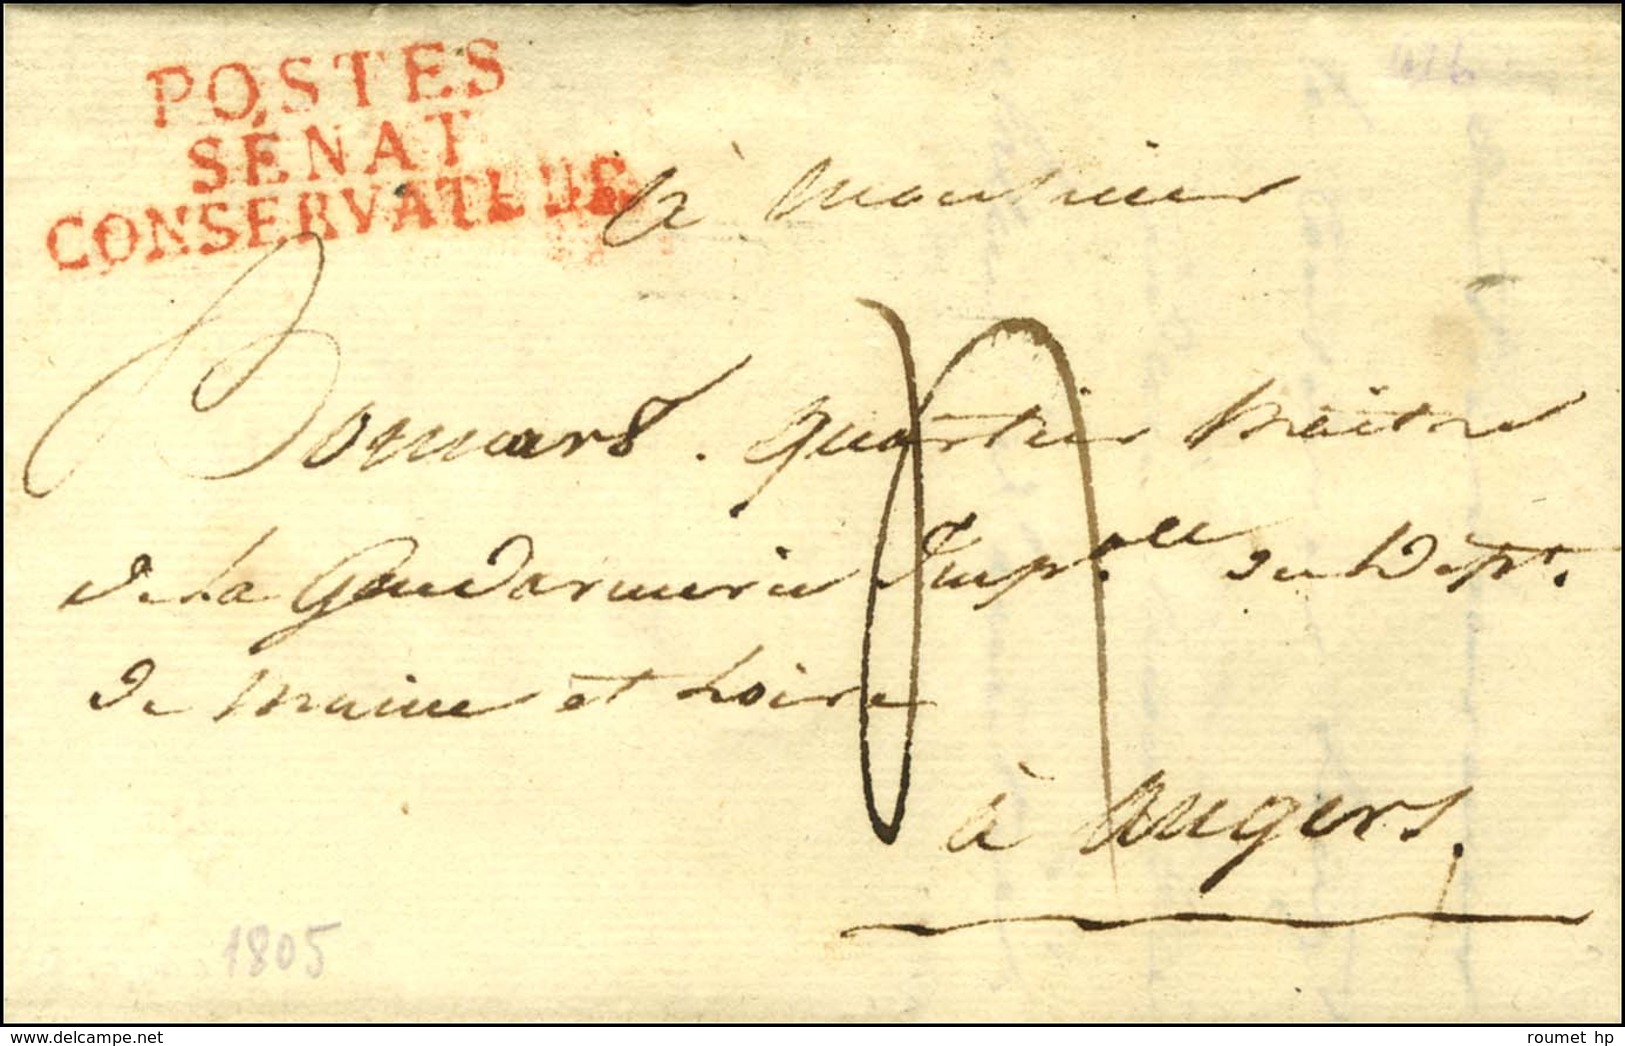 POSTES
SÉNAT
CONSERVATEUR
à Monsieur
quartier Maitre
de La Gendarmerie Imp.alle du Dépt.
de Maine et Loire
à Angers.
1805
delcampe.net
roumet hp